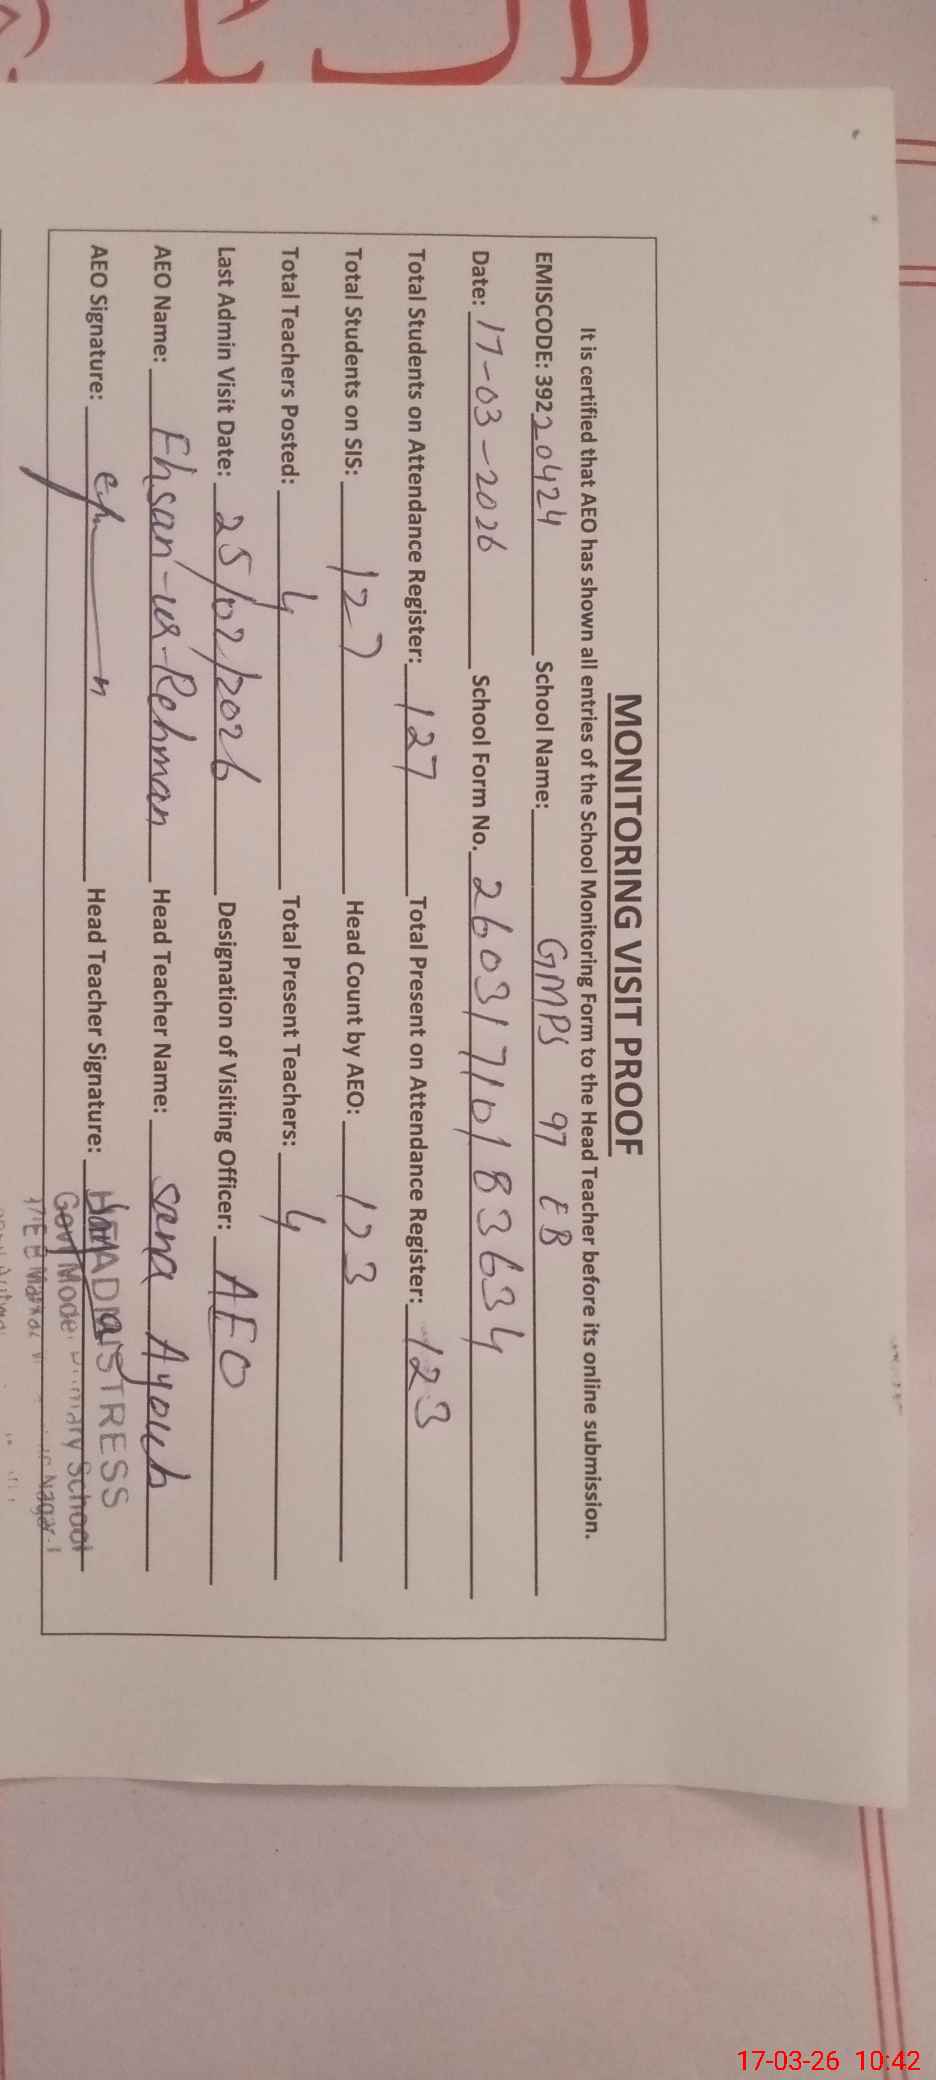 MONITORING VISIT PROOF
It is certified that AEO has shown all entries of the School Monitoring Form to the Head Teacher before its online submission.
EMISCODE: 39220424 School Name: GMPS 97 EB
Date: 17-03-2026 School Form No. 2603171018 3634
Total Students on Attendance Register: 127 Total Present on Attendance Register: 123
Total Students on SIS: 127 Head Count by AEO: 123
Total Teachers Posted: 4 Total Present Teachers: 4
Last Admin Visit Date: 25/02/2026 Designation of Visiting Officer: AEO
AEO Name: Ehsan-ur-Rehman Head Teacher Name: Sana Ayoub
AEO Signature: Head Teacher Signature:
HEADMISTRESS
Govt Model Primary School
17-03-26 10:42